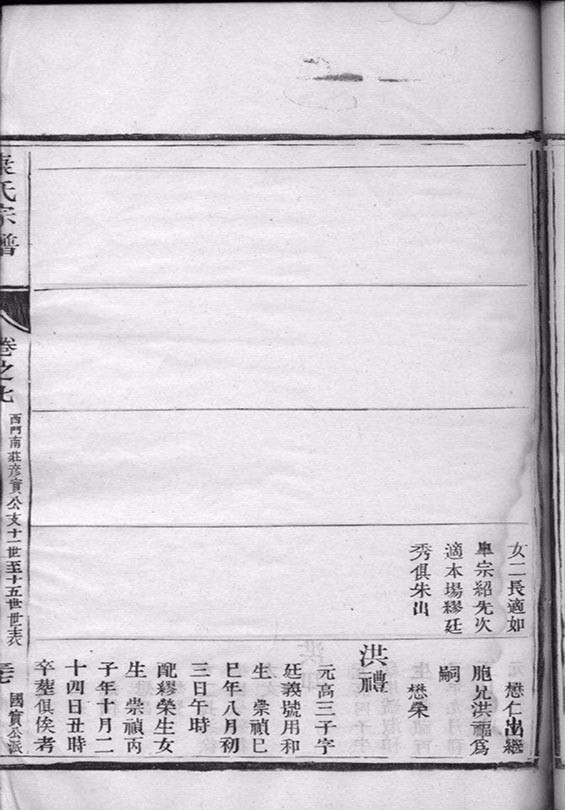 女二長適如
臯宗紹先次
適本場繆廷
秀俱朱出
懋仁出繼
胞兄洪福爲
嗣
懋榮
洪禮
元高三子字
廷義號用和
生 崇禎巳
巳年八月初
三日午時
配繆榮生女
生 崇禎丙
子年十月二
十四日丑時
卒塟俱俟考
氏宗譜
卷之七
西門南莊彦實公支十一世至十五世世表
國實公派